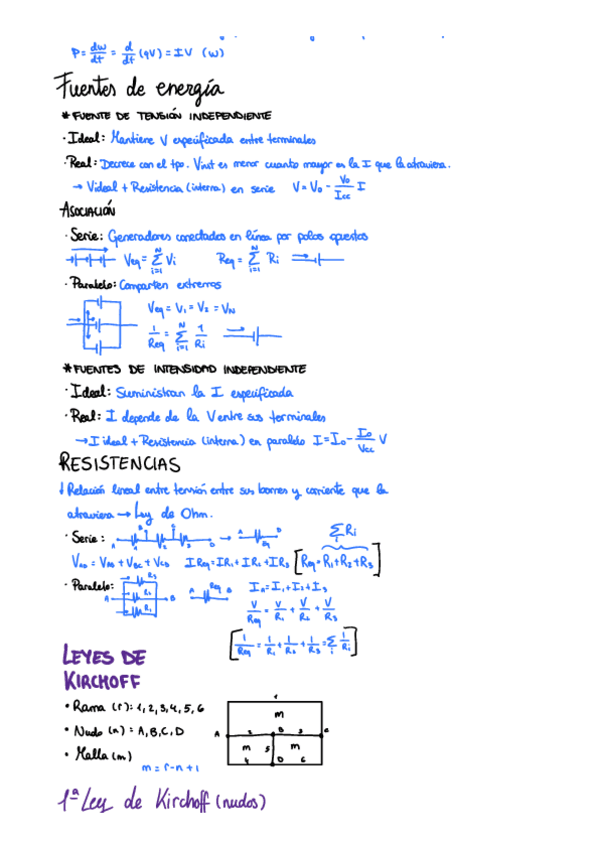 P = dw/dt = d/dt (qV) = IV (W)
Fuentes de energía
* FUENTE DE TENSIÓN INDEPENDIENTE
· Ideal: Mantiene V especificada entre terminales
· Real: Decrece con el tpo. Vinst es menor cuanto mayor es la I que la atraviesa.
→ Videal + Resistencia (interna) en serie V = V₀ - V₀/Icc I
ASOCIACIÓN
· Serie: Generadores conectados en línea por polos opuestos
Veq = N Σ i=1 Vi Req = N Σ i=1 Ri
· Paralelo: Comparten extremos
Veq = V₁ = V₂ = VN
1/Req = N Σ i=1 1/Ri
* FUENTES DE INTENSIDAD INDEPENDIENTE
· Ideal: Suministran la I especificada
· Real: I depende de la V entre sus terminales
→ I ideal + Resistencia (interna) en paralelo I = I₀ - I₀/Vcc V
RESISTENCIAS
↓ Relación lineal entre tensión entre sus bornes y corriente que la
atraviesa → Ley de Ohm.
· Serie: A 1 B 2 C 3 D → A Eq D Σ i Ri
VAD = VAB + VBC + VCD I Req = IR₁ + IR₂ + IR₃ [Req = R₁ + R₂ + R₃]
· Paralelo: A R₃ R₂ R₁ B A Req B I = I₁ + I₂ + I₃
V/Req = V/R₁ + V/R₂ + V/R₃
[1/Req = 1/R₁ + 1/R₂ + 1/R₃ = Σ i 1/Ri]
LEYES DE
KIRCHOFF
• Rama (r): 1, 2, 3, 4, 5, 6
• Nudo (n) = A, B, C, D
• Malla (m)
m = r - n + 1
1 m
A 2 B 3 C
m 5 m
4 D 6
1ª Ley de Kirchoff (nudos)